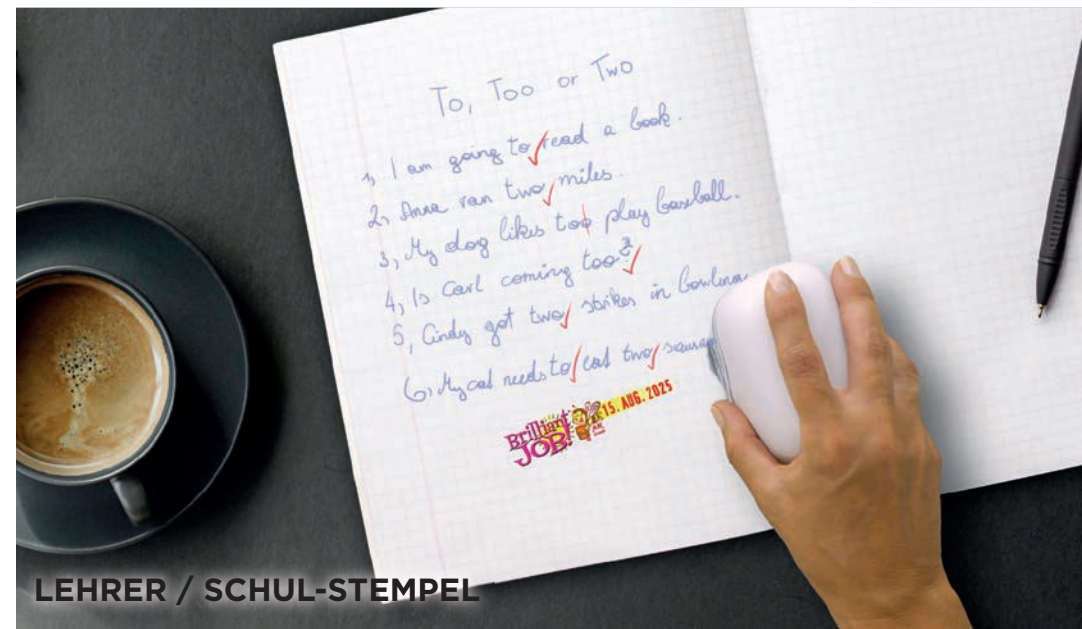 To, Too or Two
1, I am going to read a book.
2, Anna ran two miles.
3, My dog likes too play baseball.
4, Is Carl coming too?
5, Cindy got two strikes in bowling
6, My cat needs to eat two
Brilliant
JOB!
15. AUG. 2025
LEHRER / SCHUL-STEMPEL